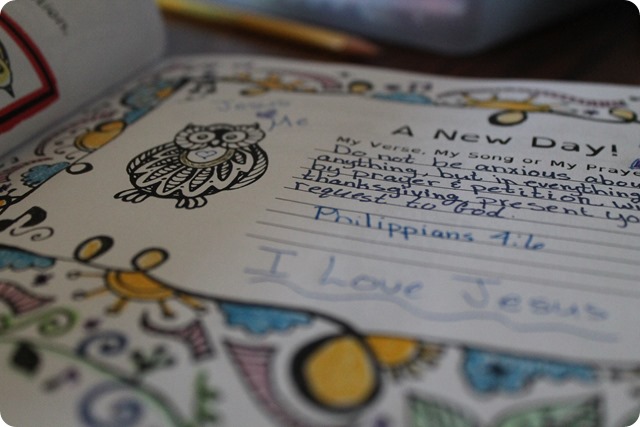 Jesus
& Me
A New Day!
My Verse, My Song or My Praye
Do not be anxious abou
anything, but in everything
by prayer & petition, wi
thanksgiving, present yo
request to God.
Philippians 4:6
I Love Jesus